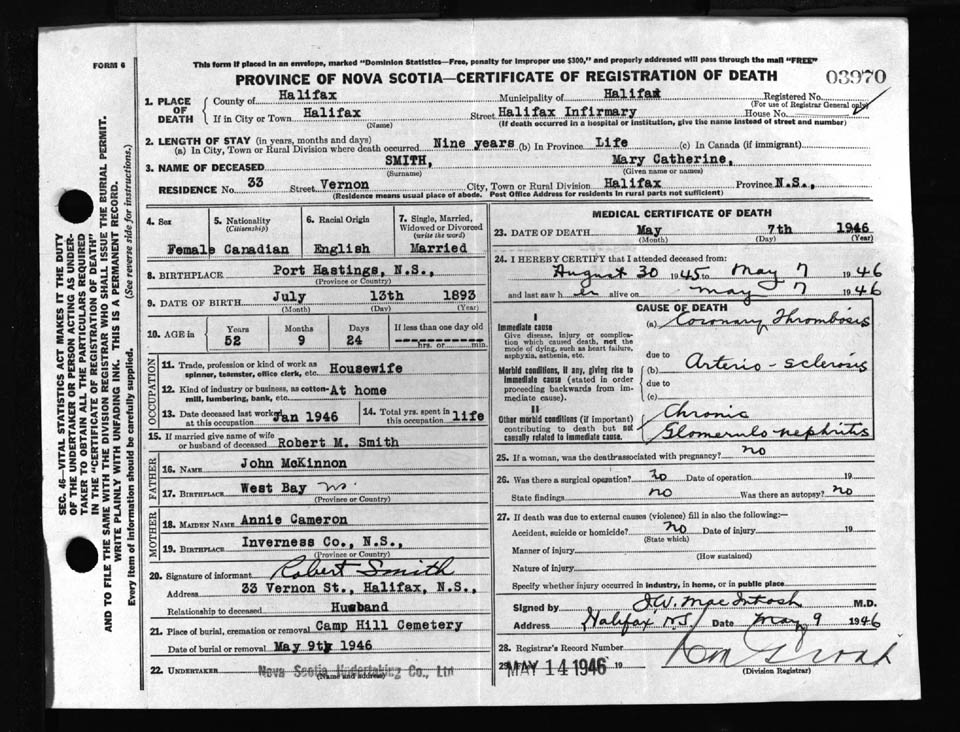 FORM 6
This form if placed in an envelope, marked "Dominion Statistics—Free, penalty for improper use $300," and properly addressed will pass through the mail "FREE"
PROVINCE OF NOVA SCOTIA—CERTIFICATE OF REGISTRATION OF DEATH
03970
1. PLACE OF DEATH
County of Halifax Municipality of Halifax Registered No.
(For use of Registrar General only)
If in City or Town Halifax Street Halifax Infirmary House No.
(Name) (If death occurred in a hospital or institution, give the name instead of street and number)
2. LENGTH OF STAY (in years, months and days)
(a) In City, Town or Rural Division where death occurred Nine years (b) In Province Life (c) In Canada (if immigrant)
3. NAME OF DECEASED SMITH, Mary Catherine,
(Surname) (Given name or names)
RESIDENCE No. 33 Street Vernon City, Town or Rural Division Halifax Province N.S.,
(Residence means usual place of abode. Post Office Address for residents in rural parts not sufficient)
4. Sex Female
5. Nationality (Citizenship) Canadian
6. Racial Origin English
7. Single, Married, Widowed or Divorced (write the word) Married
8. BIRTHPLACE Port Hastings, N.S.,
(Province or Country)
9. DATE OF BIRTH July 13th 1893
(Month) (Day) (Year)
10. AGE in Years Months Days If less than one day old
52 9 24 hrs. or min.
OCCUPATION
11. Trade, profession or kind of work as spinner, teamster, office clerk, etc. Housewife
12. Kind of industry or business, as cotton-mill, lumbering, bank, etc. At home
13. Date deceased last worked at this occupation Jan 1946
14. Total yrs. spent in this occupation life
15. If married give name of wife or husband of deceased Robert M. Smith
FATHER
16. NAME John McKinnon
17. BIRTHPLACE West Bay
(Province or Country)
MOTHER
18. MAIDEN NAME Annie Cameron
19. BIRTHPLACE Inverness Co., N.S.,
(Province or Country)
20. Signature of informant Robert Smith
Address 33 Vernon St., Halifax, N.S.,
Relationship to deceased Husband
21. Place of burial, cremation or removal Camp Hill Cemetery
Date of burial or removal May 9th 1946
22. UNDERTAKER Nova Scotia Undertaking Co., Ltd
(Name and address)
MEDICAL CERTIFICATE OF DEATH
23. DATE OF DEATH May 7th 1946
(Month) (Day) (Year)
24. I HEREBY CERTIFY that I attended deceased from:
August 30 1945 to May 7 1946
and last saw her alive on May 7 1946
CAUSE OF DEATH
I
Immediate cause
Give disease, injury or complication which caused death, not the mode of dying, such as heart failure, asphyxia, asthenia, etc.
(a) Coronary Thrombosis
due to
Morbid conditions, if any, giving rise to immediate cause (stated in order proceeding backwards from immediate cause).
(b) Arterio-sclerosis
due to
(c)
II
Other morbid conditions (if important) contributing to death but not causally related to immediate cause.
Chronic
Glomerulo-nephritis
25. If a woman, was the death associated with pregnancy? no
26. Was there a surgical operation? no Date of operation 19
State findings no Was there an autopsy? no
27. If death was due to external causes (violence) fill in also the following:—
Accident, suicide or homicide? no Date of injury 19
(State which)
Manner of injury
(How sustained)
Nature of injury
Specify whether injury occurred in industry, in home, or in public place
Signed by J.W. MacIntosh M.D.
Address Halifax N.S. Date May 9 1946
28. Registrar's Record Number
29. MAY 14 1946 19
(Division Registrar)
SEC. 46—VITAL STATISTICS ACT MAKES IT THE DUTY
OF THE UNDERTAKER OR PERSON ACTING AS UNDER-
TAKER TO OBTAIN ALL THE PARTICULARS REQUIRED
IN THE "CERTIFICATE OF REGISTRATION OF DEATH"
AND TO FILE THE SAME WITH THE DIVISION REGISTRAR WHO SHALL ISSUE THE BURIAL PERMIT.
WRITE PLAINLY WITH UNFADING INK. THIS IS A PERMANENT RECORD.
Every item of information should be carefully supplied. (See reverse side for instructions.)